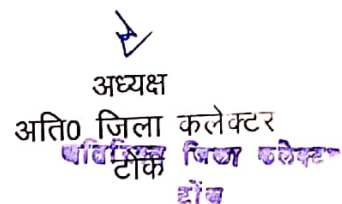 अध्यक्ष
अति0 जिला कलेक्टर
टोंक
अतिरिक्त जिला कलेक्टर
टोंक